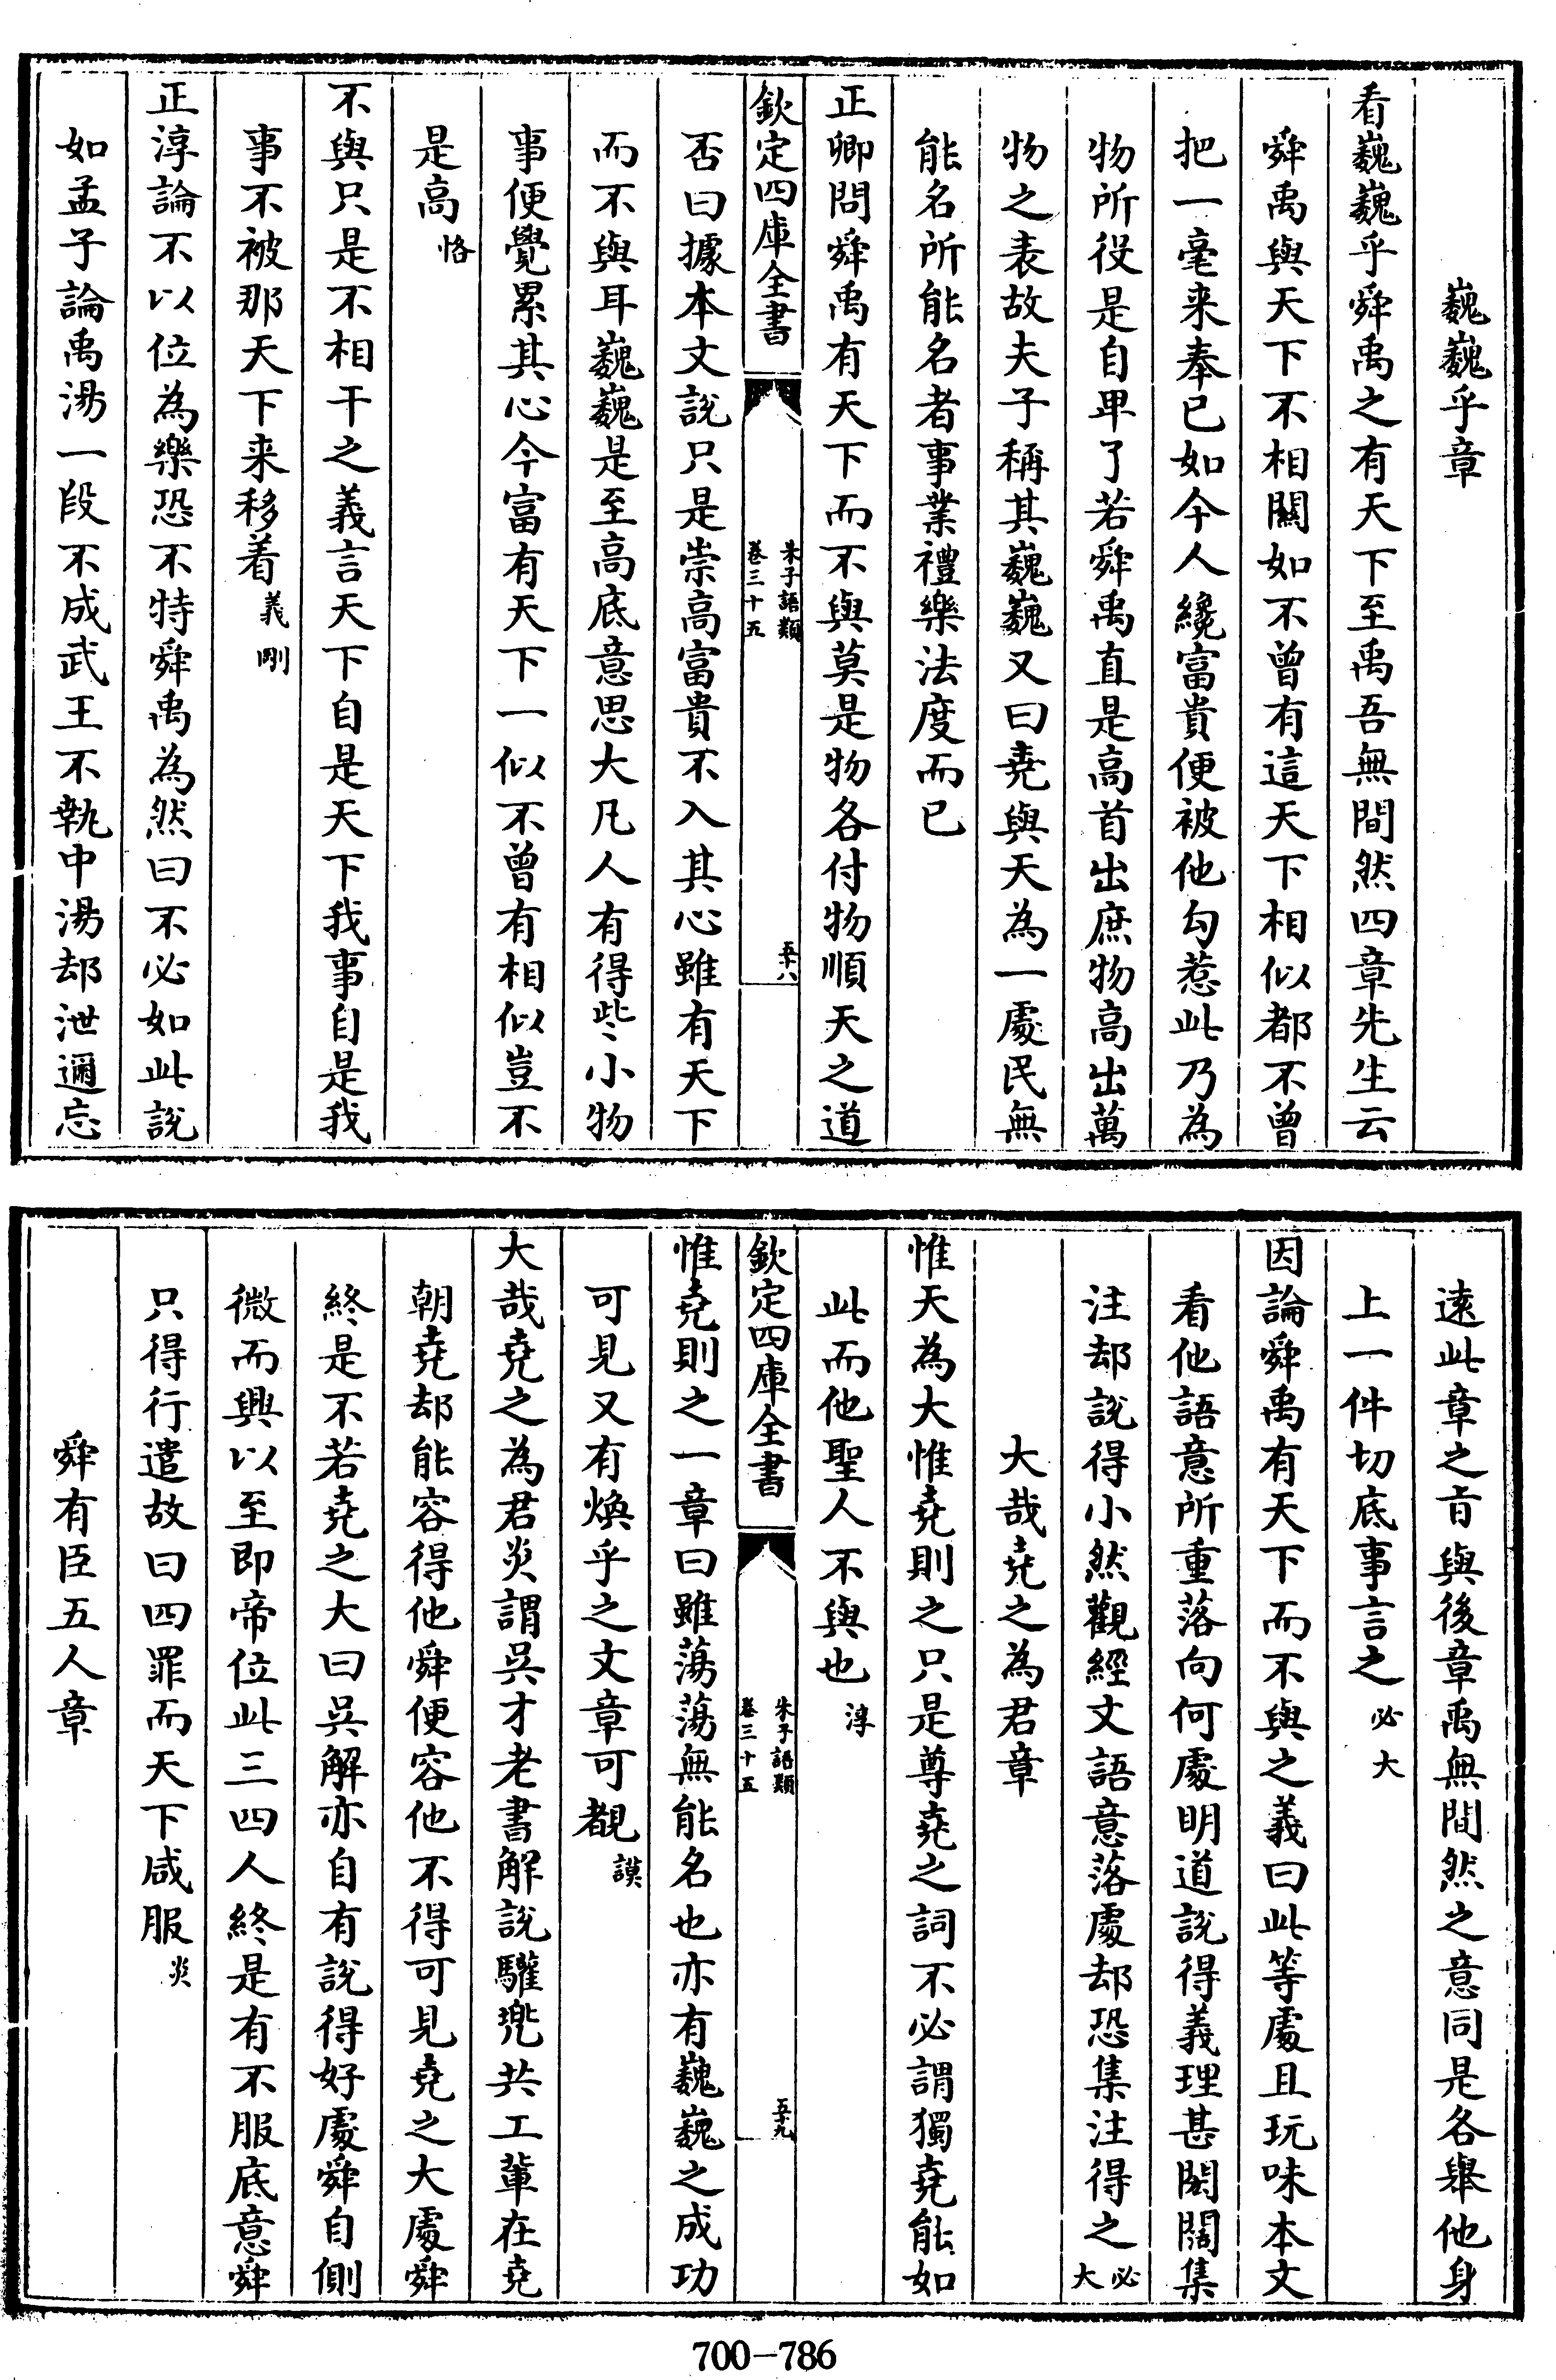 巍巍乎章
看巍巍乎舜禹之有天下至禹吾無間然四章先生云
舜禹與天下不相關如不曾有這天下相似都不曾
把一毫来奉已如今人纔富貴便被他勾惹此乃為
物所役是自卑了若舜禹直是高首出庶物高出萬
物之表故夫子稱其巍巍又曰堯與天為一處民無
能名所能名者事業禮樂法度而已
正卿問舜禹有天下而不與莫是物各付物順天之道
欽定四庫全書
朱子語類
卷三十五
五十八
否曰據本文說只是崇高富貴不入其心雖有天下
而不與耳巍巍是至高底意思大凡人有得些小物
事便覺累其心今富有天下一似不曾有相似豈不
是高恪
不與只是不相干之義言天下自是天下我事自是我
事不被那天下来移着義剛
正淳論不以位為樂恐不特舜禹為然曰不必如此說
如孟子論禹湯一段不成武王不執中湯却泄邇忘
遠此章之㫖與後章禹無間然之意同是各舉他身
上一件切底事言之必大
因論舜禹有天下而不與之義曰此等處且玩味本文
看他語意所重落向何處明道說得義理甚閎闊集
注却說得小然觀經文語意落處却恐集注得之必大
大哉堯之為君章
惟天為大惟堯則之只是尊堯之詞不必謂獨堯能如
此而他聖人不與也淳
欽定四庫全書
朱子語類
卷三十五
五十九
惟堯則之一章曰雖蕩蕩無能名也亦有巍巍之成功
可見又有煥乎之文章可覩謨
大哉堯之為君炎謂吳才老書解說驩兜共工輩在堯
朝堯却能容得他舜便容他不得可見堯之大處舜
終是不若堯之大曰吳解亦自有說得好處舜自側
微而興以至即帝位此三四人終是有不服底意舜
只得行遣故曰四罪而天下咸服炎
舜有臣五人章
700-786